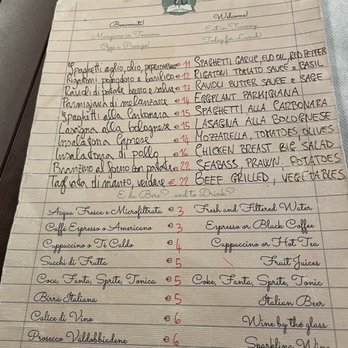 Benvenuti! Welcome!
Mangiare in Toscana, Eat in Tuscany
Oggi a Pranzo! Today for Lunch!
Spaghetti aglio, olio, peperoncino € 11 SPAGHETTI GARLIC, OLIO OIL, RED PEPPER
Rigatoni pomodoro e basilico € 12 RIGATONI TOMATO SAUCE & BASIL
Ravioli di patate burro e salvia € 13 RAVIOLI BUTTER SAUCE & SAGE
Parmigiana di melanzane € 14 EGGPLANT PARMIGIANA
Spaghetti alla Carbonara € 15 SPAGHETTI ALLA CARBONARA
Lasagna alla bolognese € 15 LASAGNA ALLA BOLOGNESE
Insalatona Caprese € 14 MOZZARELLA, TOMATOES, OLIVES
Insalatona di pollo € 16 CHICKEN BREAST BIG SALAD
Branzino al forno con patate € 22 SEABASS, PRAWN, POTATOES
Tagliata di manzo, verdure € 22 BEEF GRILLED, VEGETABLES
E da Bere? and to Drink?
Acqua Fresca e Microfiltrata € 3 Fresh and Filtered Water
Caffè Espresso o Americano € 3 Espresso or Black Coffee
Cappuccino o Tè Caldo € 4 Cappuccino or Hot Tea
Succhi di Frutta € 5 Fruit Juices
Coca, Fanta, Sprite, Tonica € 5 Coke, Fanta, Sprite, Tonic
Birra Italiana € 5 Italian Beer
Calice di Vino € 6 Wine by the glass
Prosecco Valdobbiadene € 6 Sparkling Wine